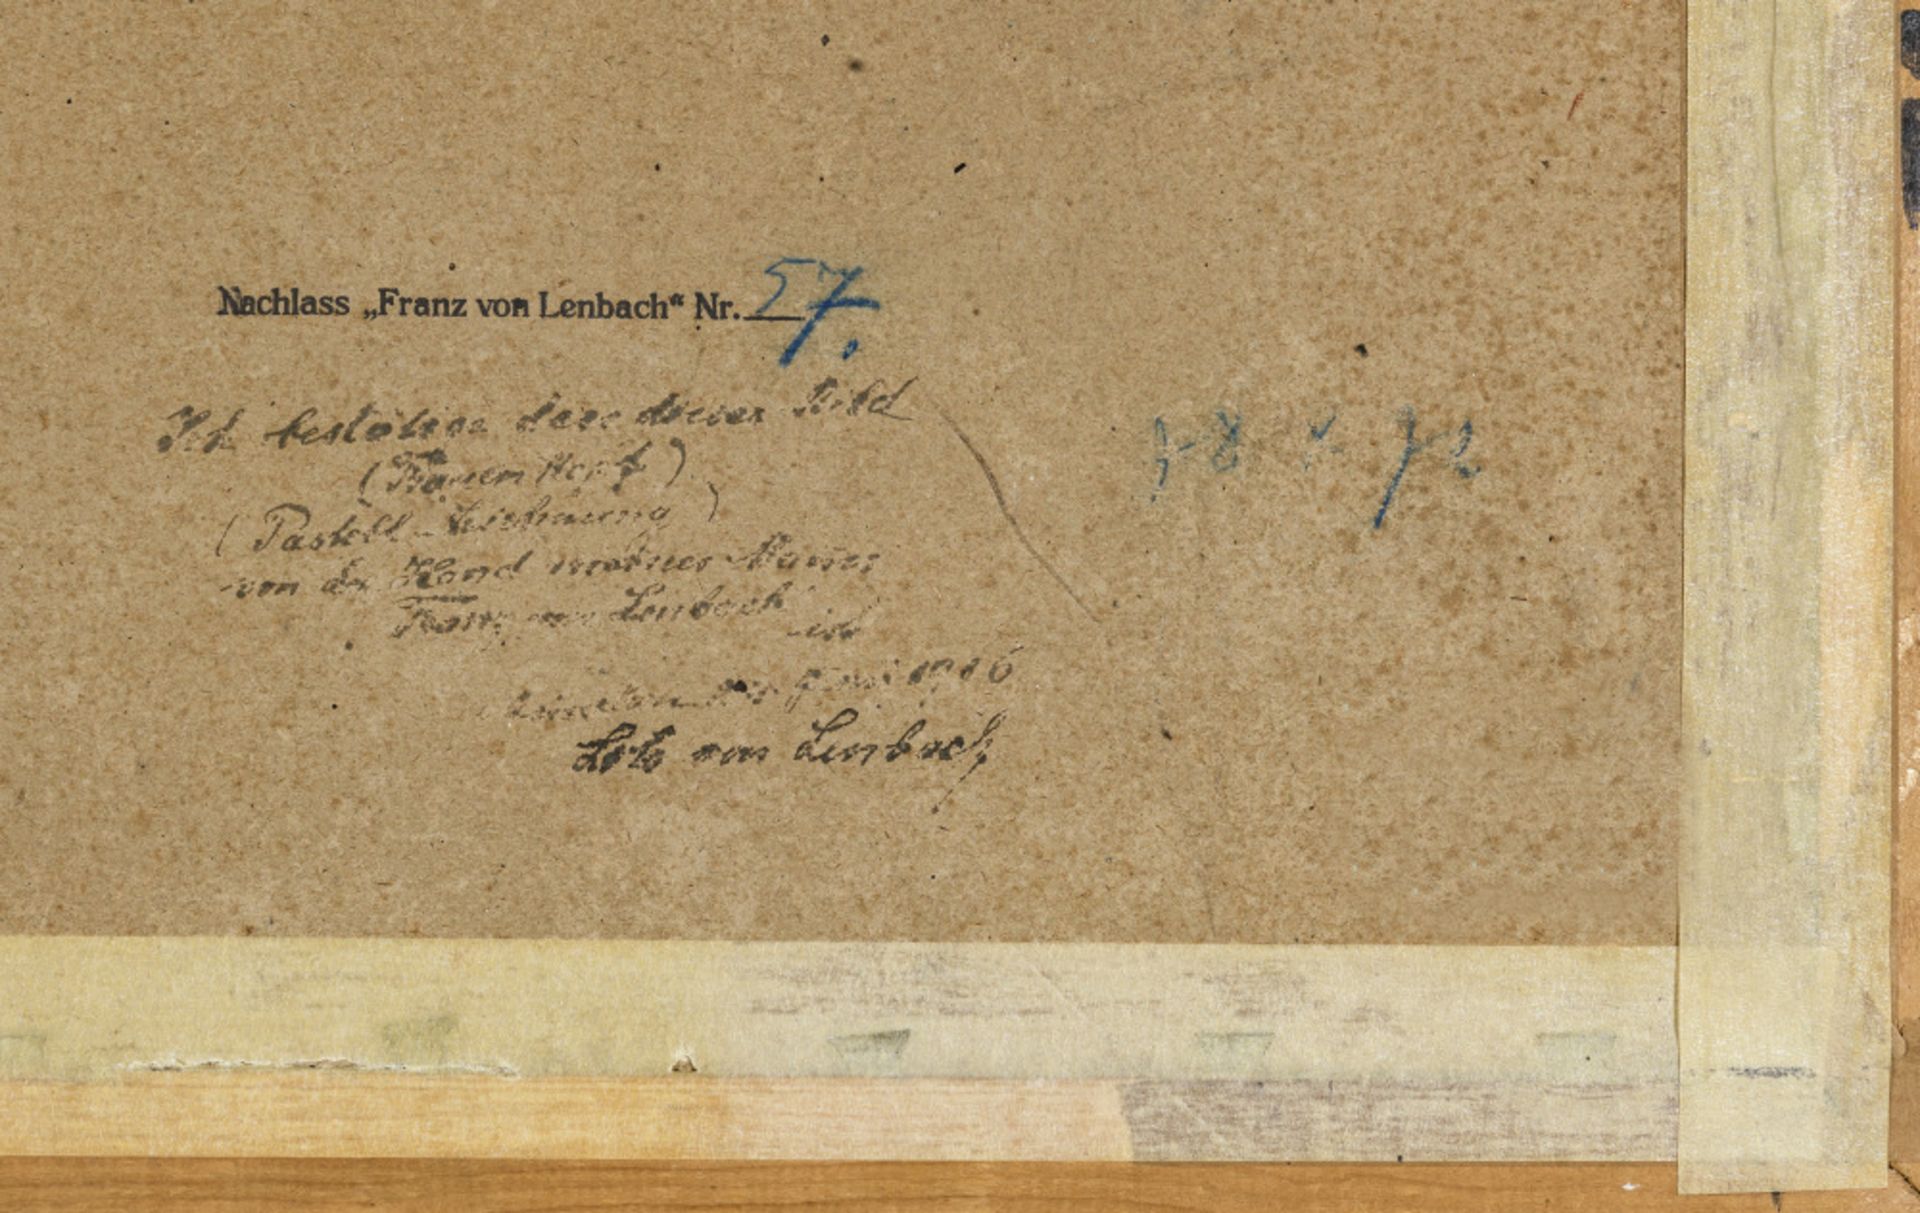 Nachlass „Franz von Lenbach“ Nr. 57.
Ich bestätige dass dieses Bild
(Frauenkopf)
(Pastell-Zeichnung)
von der Hand meines Mannes
Franz von Lenbach
ist
1916
Lolo von Lenbach